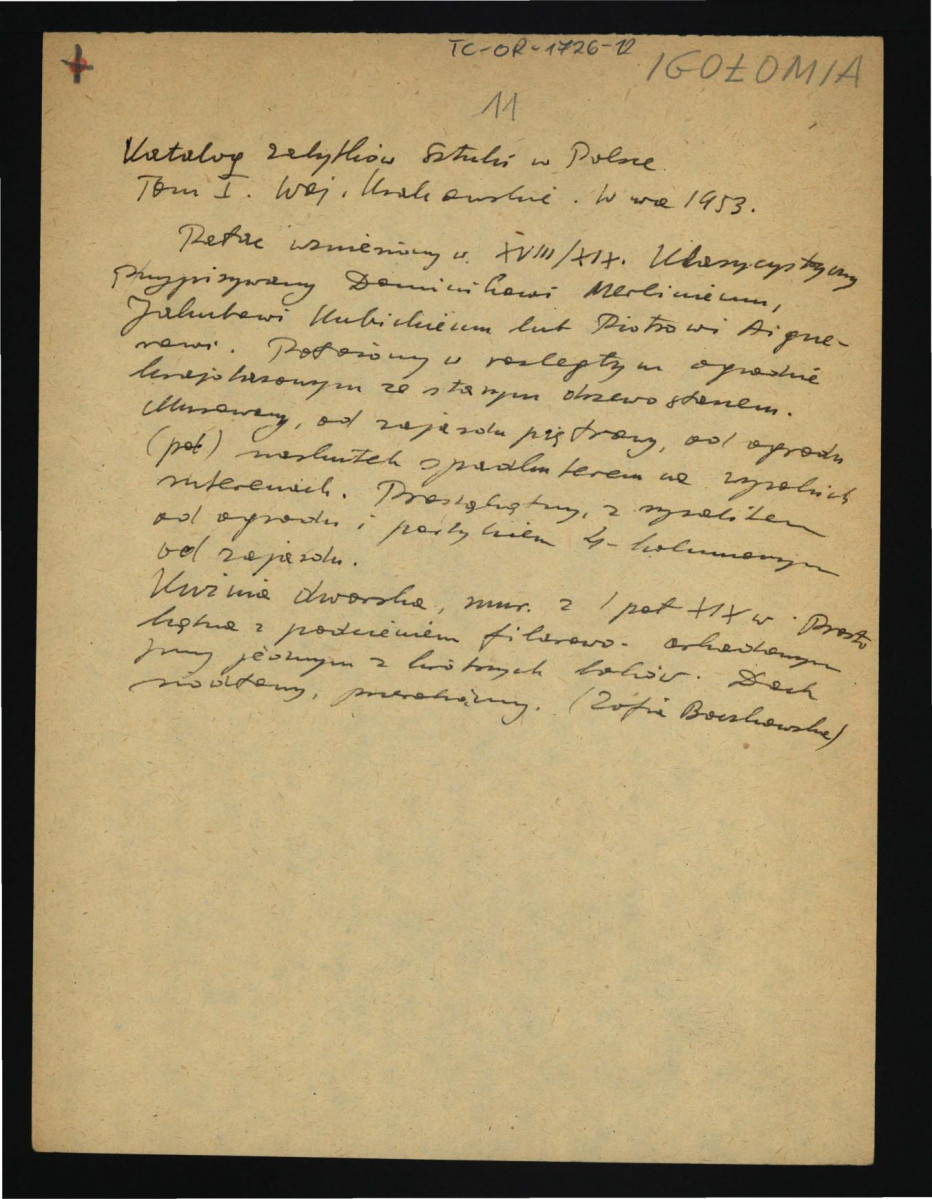 TC-OR-1726-12
IGOŁOMIA
11
Katalog zabytków Sztuki w Polsce
Tom I. Woj. Krakowskie. W-wa 1953.
Pałac wzniesiony w. XVIII/XIX. Klasycystyczny
przypisywany Dominikowi Merliniemu,
Jakubowi Kubickiemu lub Piotrowi Aigne-
rowi. Położony w rozległym ogrodzie
krajobrazowym ze starym drzewostanem.
Murowany, od zajazdu piętrowy, od ogrodu
(płd) naskutek spadku terenu na wysokich
suterenach. Prostokątny, z ryzalitem
od ogrodu i portykiem 4-kolumnowym
od zajazdu.
Kuźnia dworska, mur. z I poł XIX w. Prosto
kątna z podcieniem filarowo-arkadowym
przy jednym z krótszych boków. Dach
siodłowy, przerobiony. (Zofia Boczkowska)